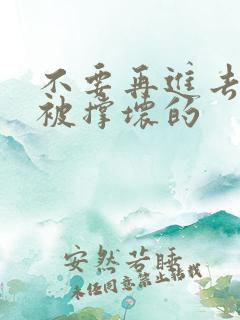 不要再进去
被撑坏的
安然若睡
未经同意禁止转载